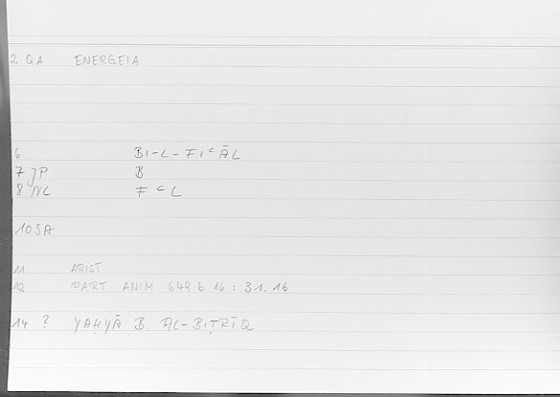 2 QA ENERGEIA
6 BI-L-FIᶜĀL
7 JP B
8 NC FᶜL
10 SA
11 ARIST
12 PART ANIM 649 b 16 : 31.16
14 ? YAḤYĀ B AL-BIṬRĪQ